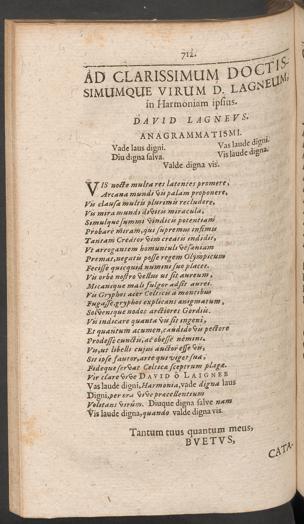 712.
AD CLARISSIMUM DOCTIS-
SIMUMQUE VIRUM D. LAGNEUM,
in Harmoniam ipsius.
DAVID LAGNEVS.
ANAGRAMMATISMI.
Vade laus digni. Vas laude digni.
Diu digna salva. Vis laude digna.
Valde digna vis.
VIS nocte multa res latentes promere,
Arcana mundi vis palam proponere,
Vis clausa multis plurimis recludere,
Vis mira mundi diversis miracula,
Simulque summi vindicis potentiam
Probare miram, qui supremus infimis
Tantam Creator vim creatis indidit,
Ut arrogantem homunculi vesaniam
Premat, negatis posse regem Olympicum
Fecisse quicquid numini suo placet.
Vis orbe nostro vellus ut sit aureum,
Micansque mali fulgor adsit aurei.
Vis Gryphas acer Celticis a montibus
Fugasse, gryphos explicans ænigmatum,
Solvensque nodos arctiores Gordiis.
Vis indicare quanta vis sit ingeni,
Et quantum acumen, candido vis pectore
Prodesse cunctis, ac obesse nemini.
Vis, ut libelli cujus auctor esse vis,
Sit ipse fautor, arte quæ viget sua,
Fideque servat Celtica sceptrum plagæ.
Vir clare vive DAVID ô LAIGNER
Vas laude digni, Harmonia, vade digna laus
Digni, per ora vive præcellentium
Volitans virûm. Diuque digna salve nam
Vis laude digna, quando valde digna vis.
Tantum tuus quantum meus,
BVETVS,
CATA-